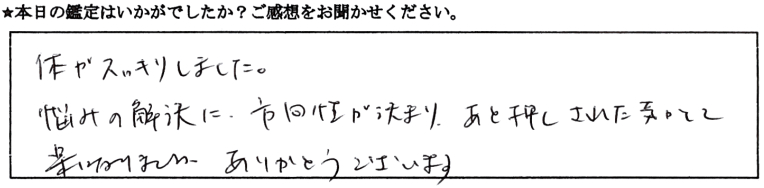 ★本日の鑑定はいかがでしたか？ご感想をお聞かせください。
体がスッキリしました。
悩みの解決に、方向性が決まり、あと押しされた気がして
楽になりました ありがとうございます